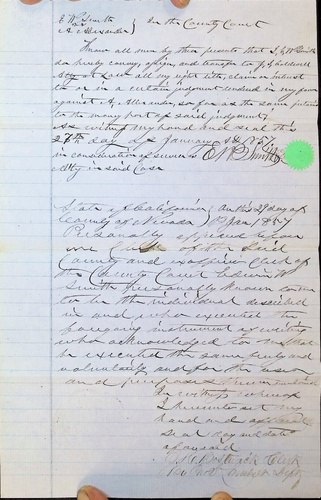 E. W. Smith } In the County Court
vs
A. Alexander
Know all men by these presents that I, E W Smith
do hereby convey, assign, and transfer to J. Caldwell
Atty at Law all my right title, claim or interest
to or in a certain judgment rendered in my favor
against A. Alexander, so far as the same pertains
to the money part of said judgment,
As witness my hand and seal this
27th day of January A.D. 1857
in consideration of services E. W. Smith
Atty in said Case
State of California } On this 27 day of
County of Nevada } Jan 1857
Personally appeared before
me Clerk of the said
County and exofficio Clerk of
the County Court Edwin W
Smith Personally known to me
to be the individual described
in and who executed the
foregoing instrument of writing
who acknowledged to me that
he executed the same freely and
voluntarily and for the uses
and purposes therein mentioned
In witness whereof
I hereunto set my
hand and official
seal day and date
aforesaid
Clerk
Depty